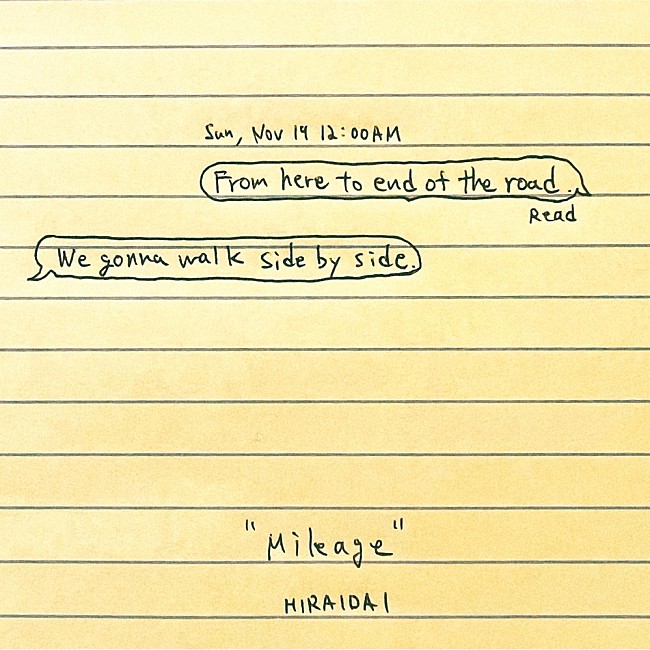 Sun, Nov 14 12:00AM
From here to end of the road.
Read
We gonna walk side by side.
"Mileage"
HIRAIDAI